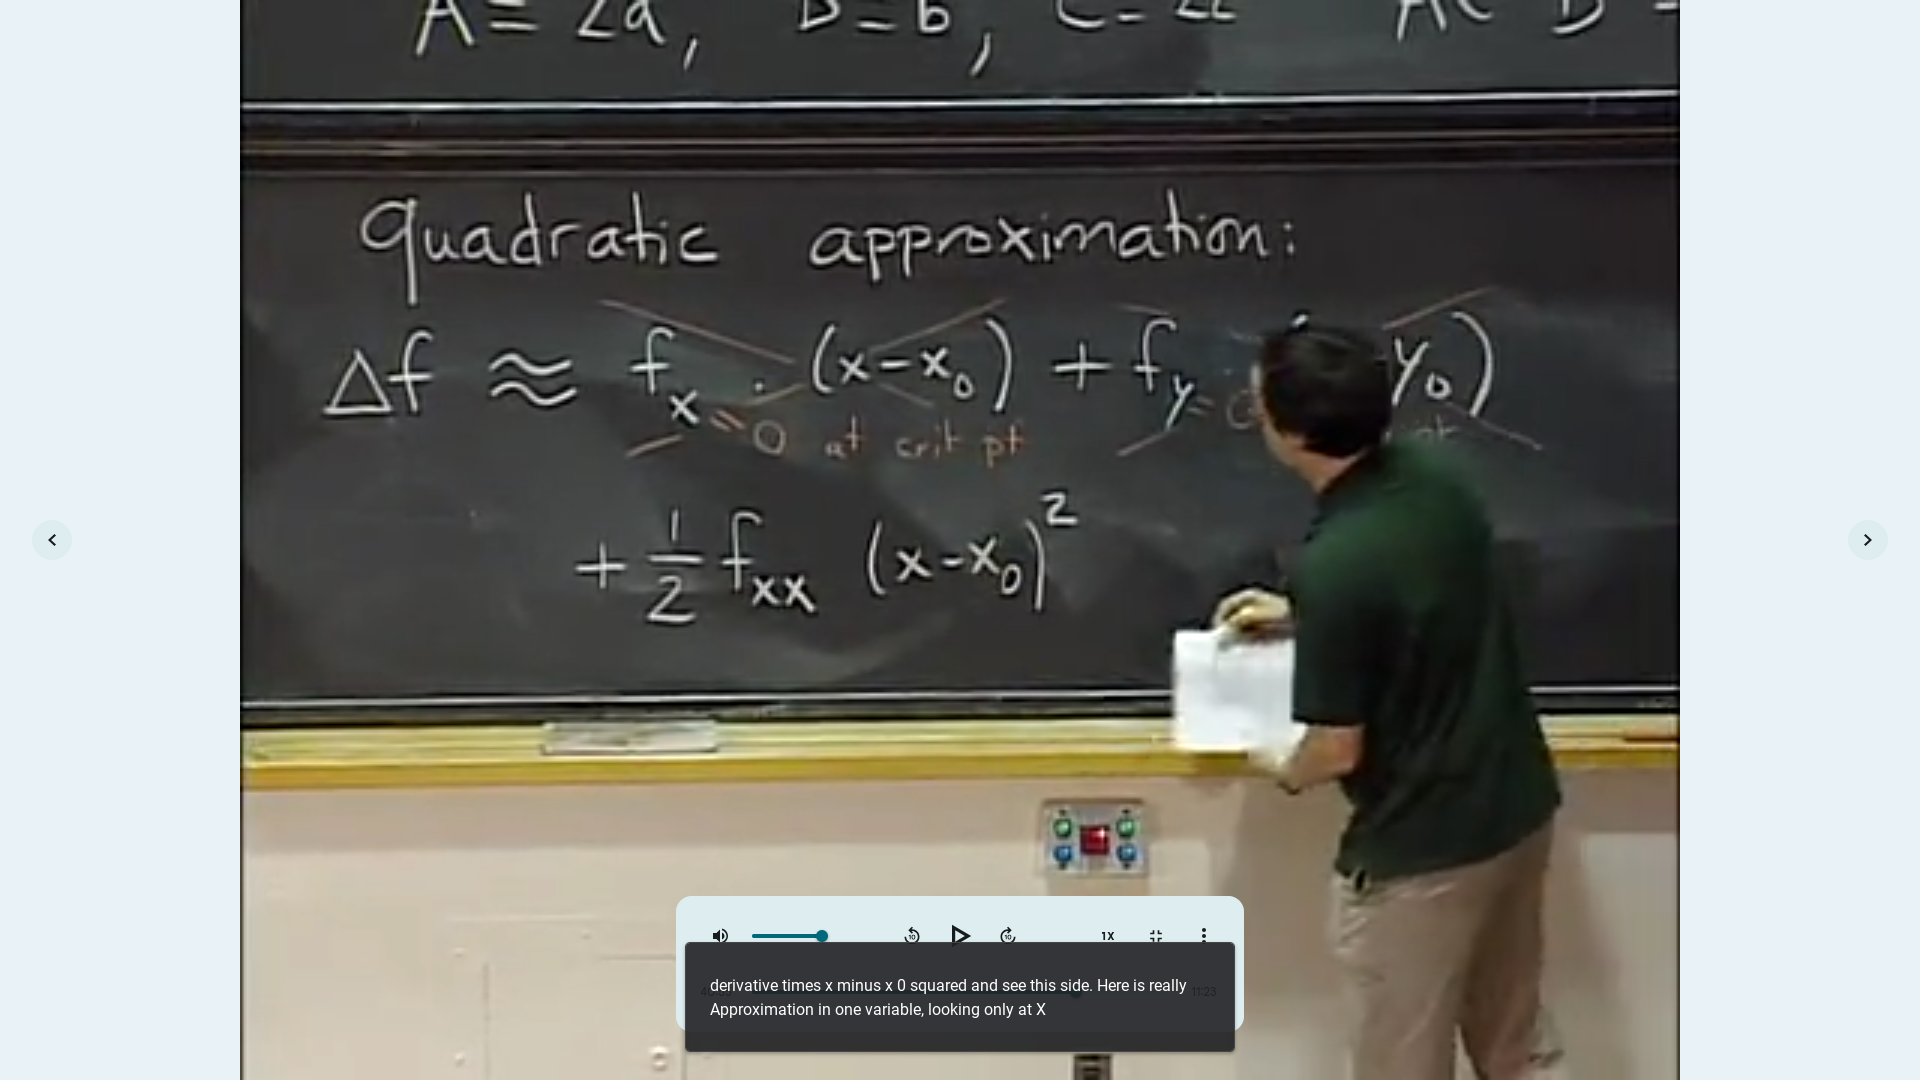 A = 2a, B = b, C = 2c AC - B
quadratic approximation:
Δf ≈ f_x · (x - x_0) + f_y y_0)
= 0 at crit pt = 0 pt
+ 1/2 f_xx (x - x_0)^2
1X
derivative times x minus x 0 squared and see this side. Here is really
11:23
Approximation in one variable, looking only at X